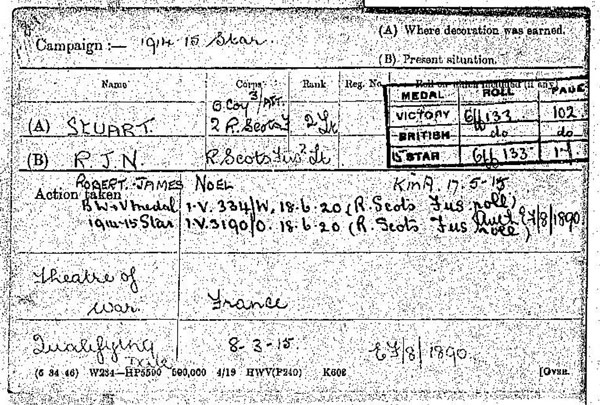 Campaign :— 1914-15 Star.
(A) Where decoration was earned.
(B) Present situation.
Name Corps Rank Reg. No. Roll on which included (if any)
MEDAL ROLL PAGE
VICTORY 133 102
BRITISH do do
15 STAR 133
(A) STUART. 2 R. Scots F 2/Lt
(B) R J N. R Scots Fus 2 Lt
ROBERT JAMES NOEL K in A. 17-5-15
Action taken
BW & V medal 1.V. 3314/W, 18.6.20 (R. Scots Fus roll)
1914-15 Star 1.V. 3190/O. 18.6.20 (R. Scots Fus roll) EF/8/1890
Theatre of War. France
Qualifying Date 8-3-15. EF/8/1890.
(6 34 46) W234—HP5590 500,000 4/19 HWV(P240) K608 [Over.